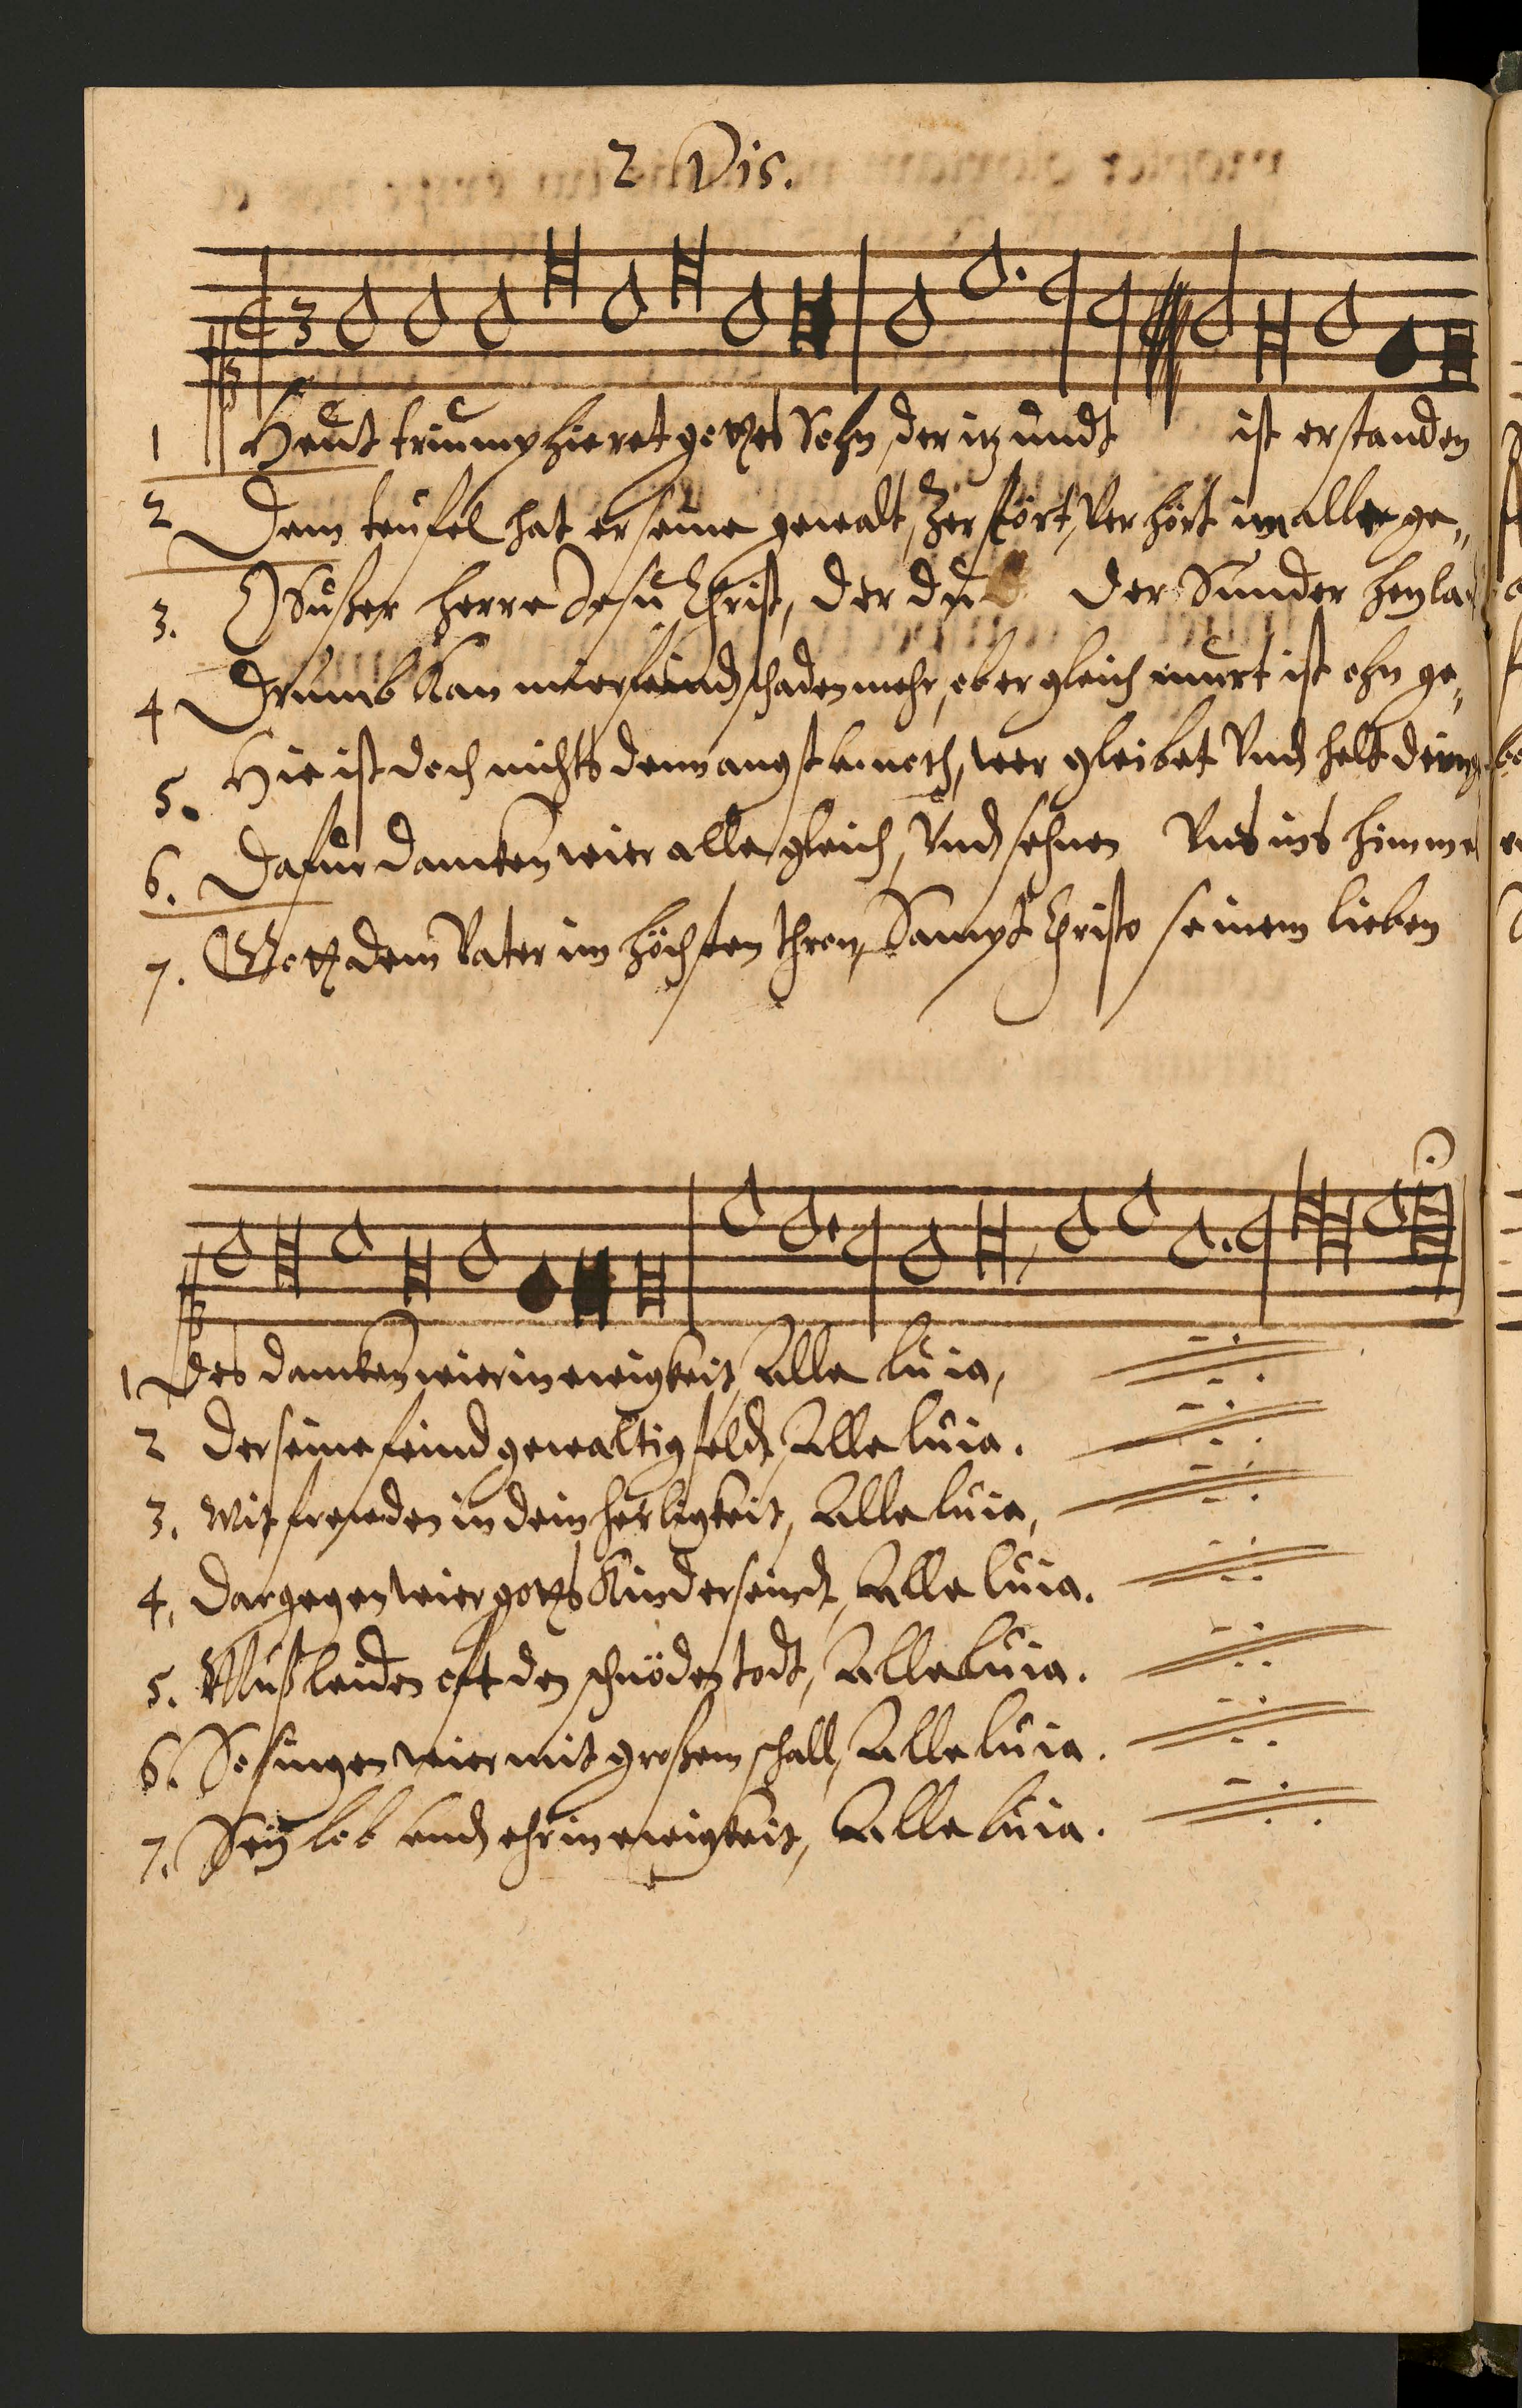 2 Dis.
1 Heut triumphieret gottes Sohn, der itzundt ist erstanden
2 Dem teufel hat er seine gewalt, Zerstört, Verhört im alle ge„
3. O Süßer herre Jesu Christ, der du der Sünder heyla
4 Drumb Kan mier feindt schaden mehr, ob er gleich murt ist ohn ge„
5. Hie ist doch nichts denn angst noth, wer gleibet Vnd helt dein
6. Dafür dancken wier alle gleich, Vnd sehnen Vns ins himme
7. Gott dem Vater im höchsten thron, Sampt Christo seinem lieben
1 des dancken wier in ewigkeit, Alleluia,
2 der seine feind gewaltig feldt, Alleluia.
3. Mit freuden in dein herligkeit, Alleluia,
4. Dargegen wier gotts Kinder seindt, Alleluia.
5. Muß leiden oft den schnöden todt, Alleluia.
6. So singen wier mit großem schall, Alleluia.
7. Sey lob vnd ehr in ewigkeit, Alleluia.